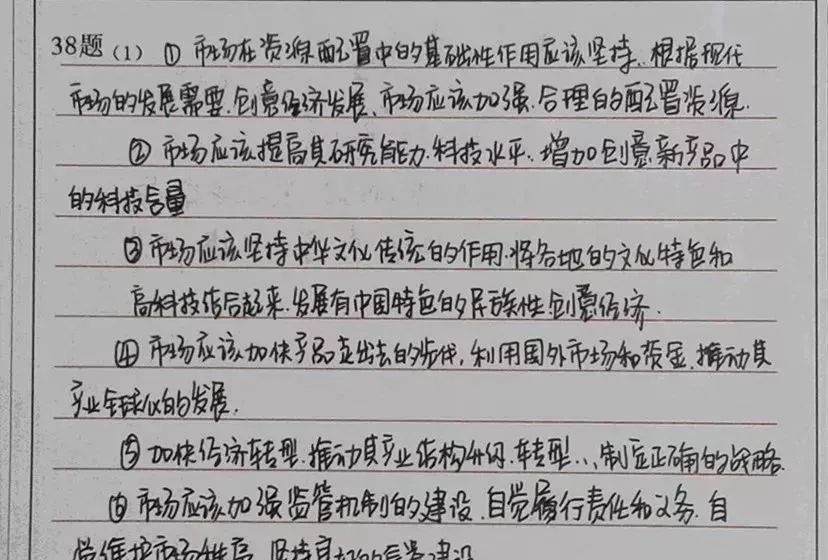 38题 (1) ① 市场在资源配置中的基础性作用应该坚持. 根据现代
市场的发展需要, 创意经济发展、市场应该加强.合理的配置资源.
② 市场应该提高其研究能力.科技水平. 增加创意新产品中
的科技含量
③ 市场应该坚持中华文化传统的作用.将各地的文化特色和
高科技结合起来.发展有中国特色的民族性创意经济.
④ 市场应该加快产品走出去的步伐, 利用国外市场和资金.推动其
产业全球化的发展.
⑤ 加快经济转型.推动其产业结构升级.转型... 制定正确的战略.
⑥ 市场应该加强监管机制的建设.自觉履行责任和义务.自
觉维护市场秩序. 坚持自己的信誉建设